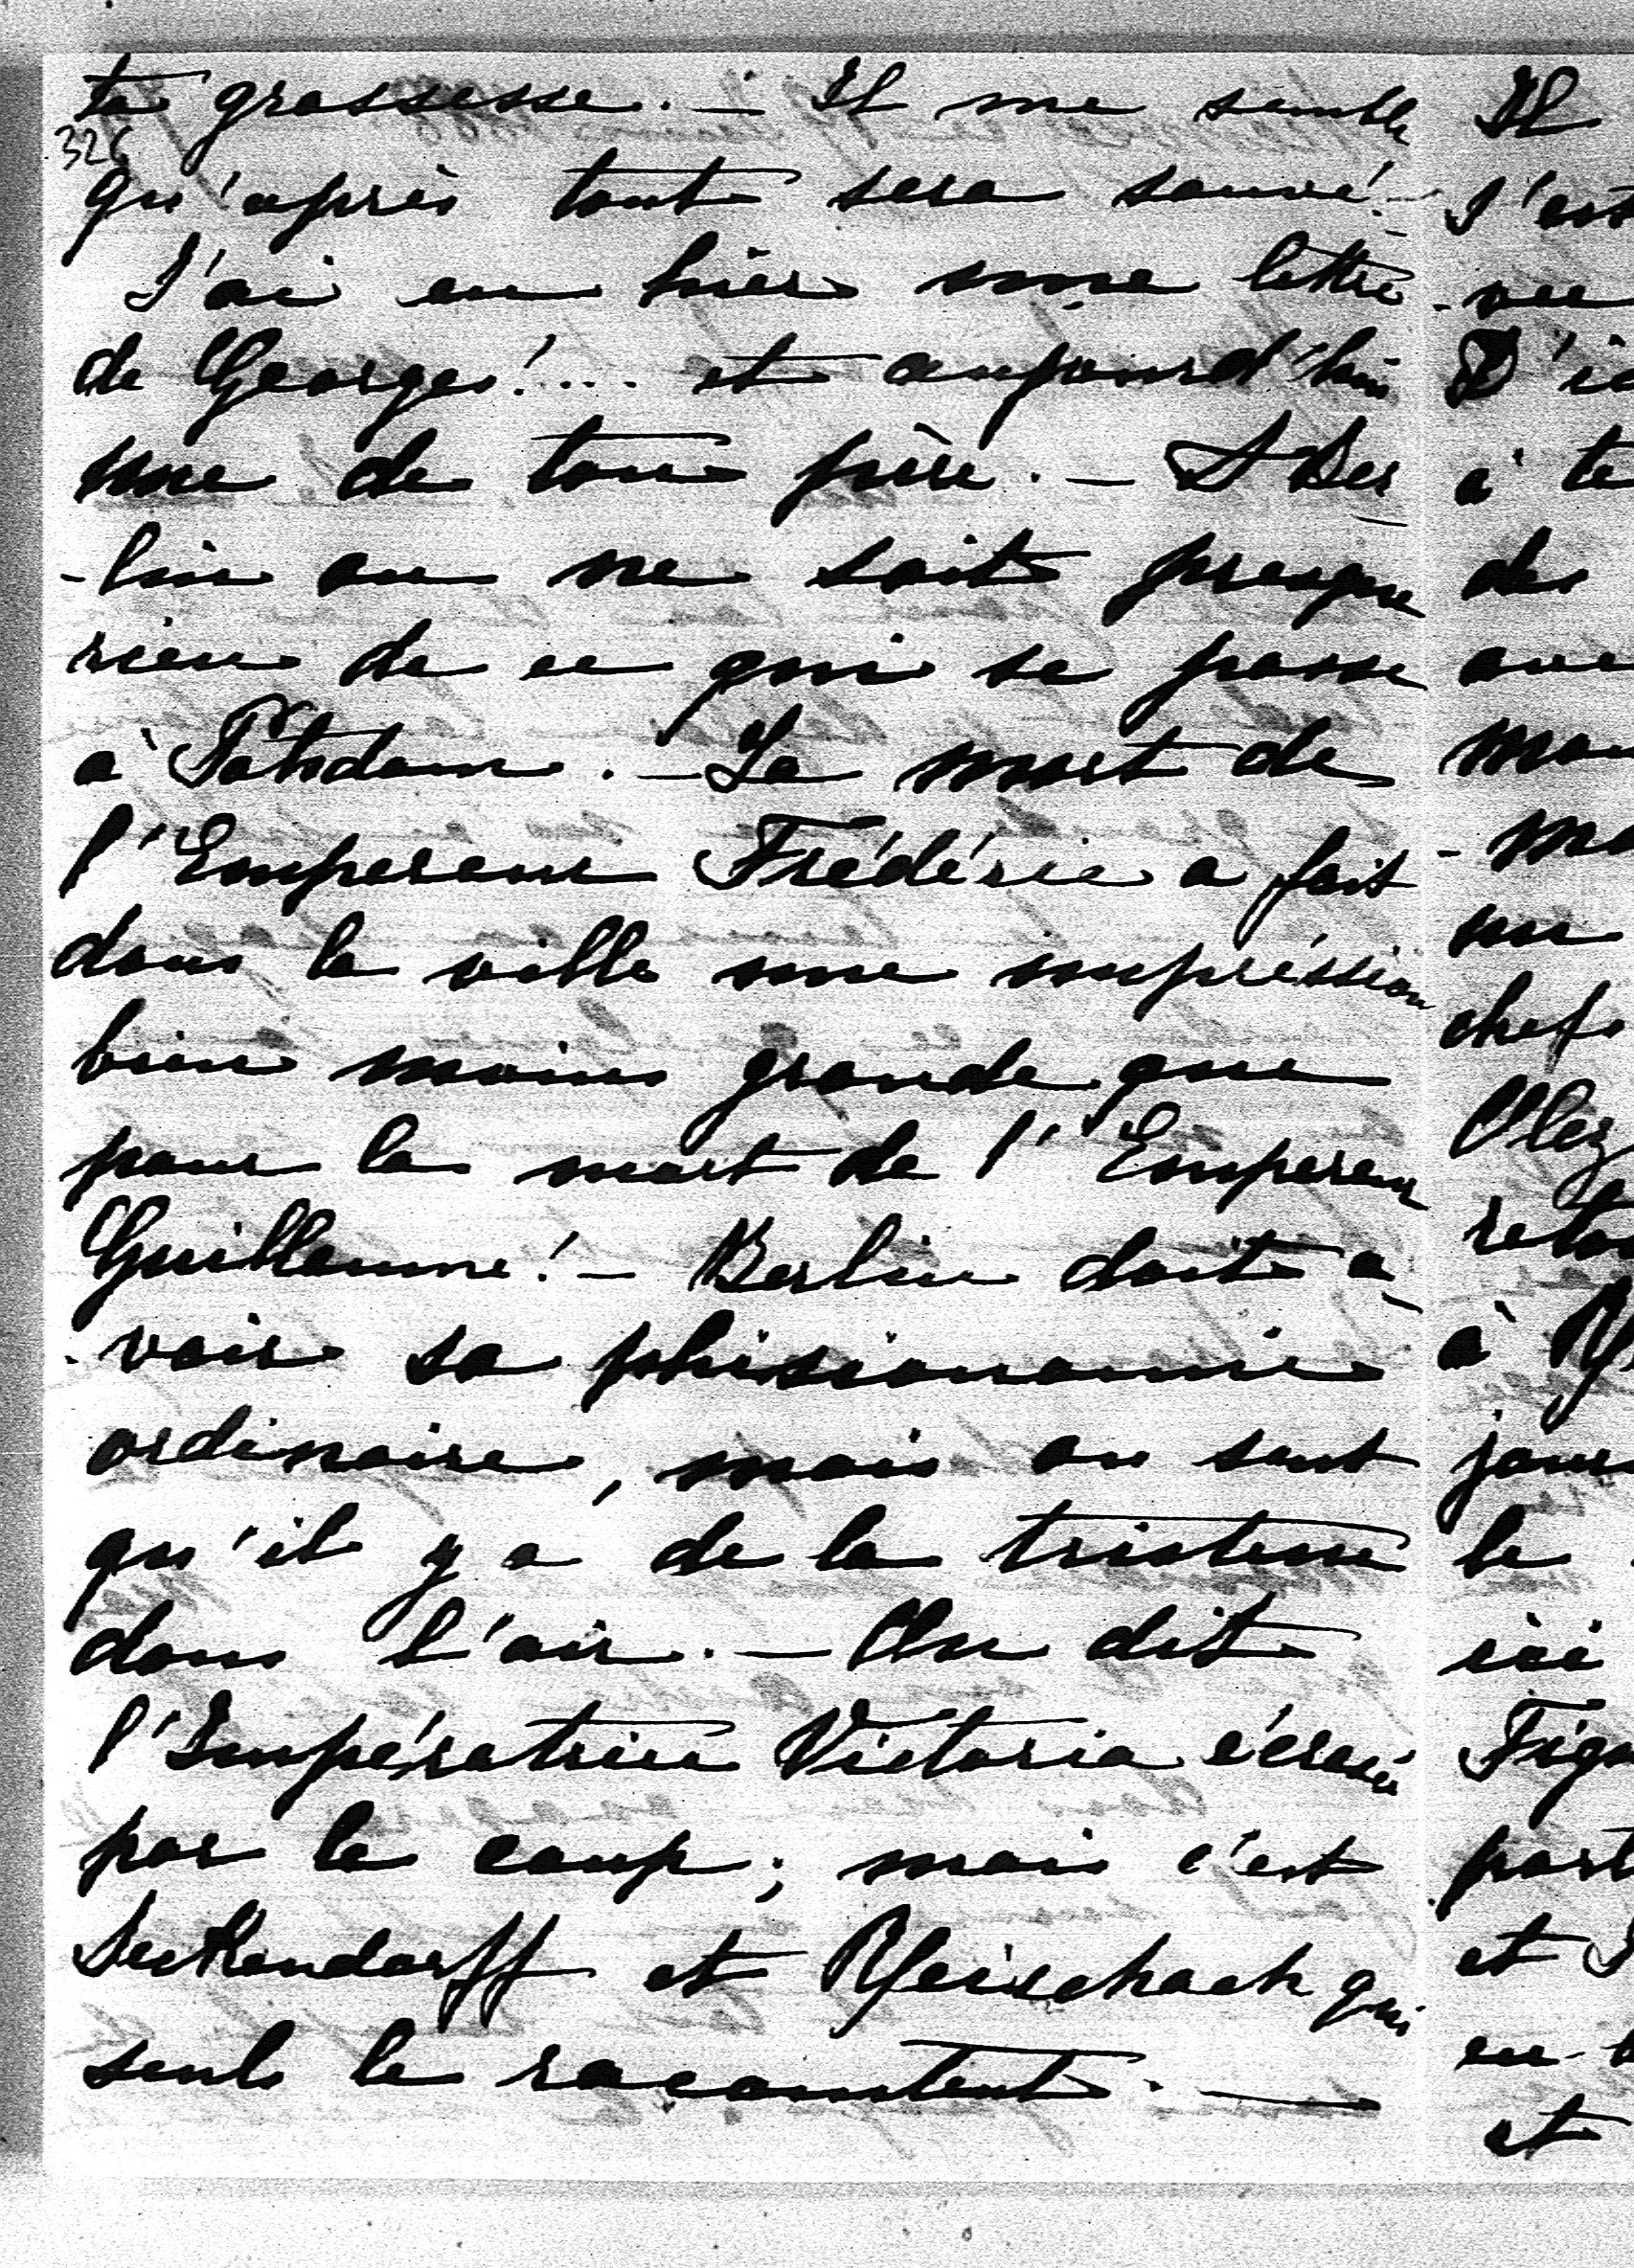 ta grossesse. — Il me semble
326
qu'après tout sera sauvé. —
J'ai eu hier une lettre
de Georges!.... et aujourd'hui
une de ton père. — A Ber
-lin on ne sait presque
rien de ce qui se passe
à Potsdam. — La mort de
l'Empereur Frédéric a fait
dans la ville une impréssion
bien moins grande que
pour la mort de l'Empereur
Guillaume! — Berlin doit a
-voir sa phisionomie
ordinaire, mais on sent
qu'il y a de la tristesse
dans l'air. — On dit
l'Impératrice Victoria écrasée
par le coup; mais c'est
Seckendorff et Reischach qui
seuls le racontent. —
Il
s'est
-vee
D'ic
à te
des
ave
mon
-mo
un
chefs
Olez
reto
à
jour
le
ici
Figa
part
et
en
et